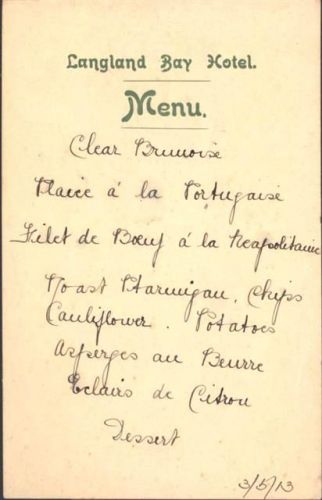 Langland Bay Hotel.
Menu.
Clear Brunoise
Plaice á la Portugaise
Filet de Bœuf á la Neapolitaine
Roast Ptarmigan, Chips
Cauliflower. Potatoes
Asperges au Beurre
Eclairs de Citron
Dessert
3/5/13